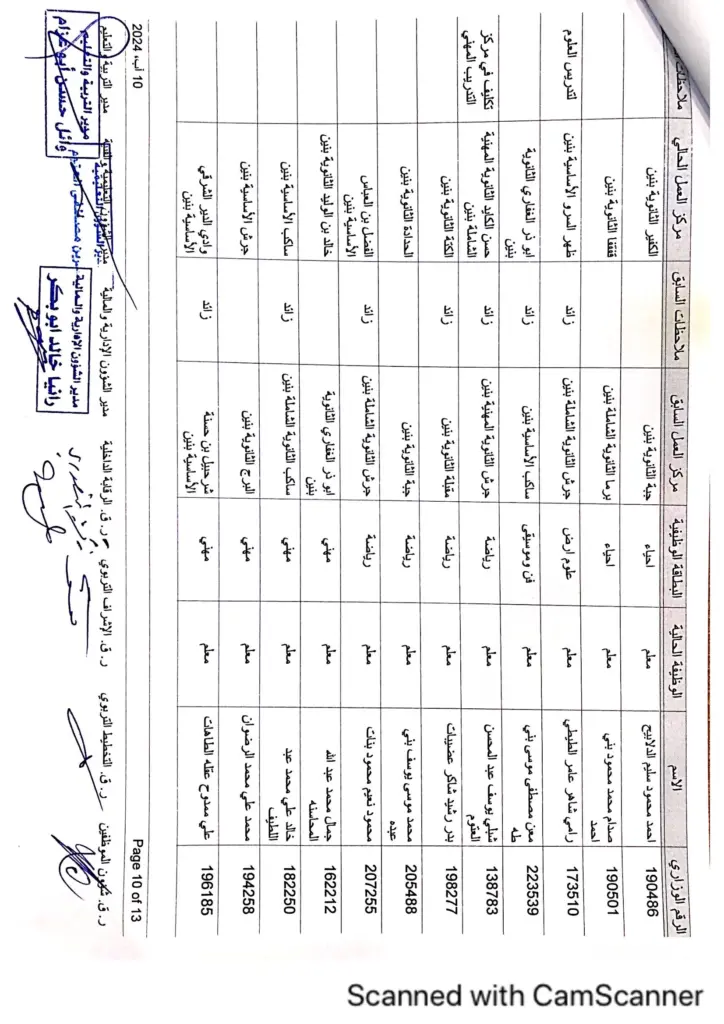 الرقم الوزاري الاسم الوظيفة الحالية البطاقة الوظيفية مركز العمل السابق ملاحظات السابق مركز العمل الحالي ملاحظات
190486 احمد محمود سليم الدلابيح معلم احياء حبة الثانوية بنين الكفير الثانوية بنين
190501 صدام محمد محمود بني احمد معلم احياء برما الثانوية الشاملة بنين قفقفا الثانوية بنين
173510 رامي شاهر عامر الطيطي معلم علوم ارض جرش الثانوية الشاملة بنين زائد ظهر السرو الأساسية بنين لتدريس العلوم
223539 معن مصطفى موسى بني طه معلم فن وموسيقى ساكب الأساسية بنين زائد ابو ذر الغفاري الثانوية بنين
138783 شبلي يوسف عبد المحسن العتوم معلم رياضة جرش الثانوية المهنية بنين زائد حسن الكايد الثانوية المهنية الشاملة بنين تكليف في مركز التدريب المهني
198277 بدر رشيد شاكر عضيبات معلم رياضة مقبلة الثانوية بنين زائد الكتة الثانوية بنين
205488 محمد موسى يوسف بني عبده معلم رياضة حبة الثانوية بنين الحدادة الثانوية بنين
207255 محمود نعيم محمود بنات معلم رياضة جرش الثانوية الشاملة بنين زائد الفضل بن العباس الأساسية بنين
162212 جمال محمد عبد الله المحاسنه معلم مهني ابو ذر الغفاري الثانوية بنين خالد بن الوليد الثانوية بنين
182250 خالد علي محمد عبد اللطيف معلم مهني ساكب الثانوية الشاملة بنين زائد ساكب الأساسية بنين
194258 محمد علي محمد الرضوان معلم مهني البرج الثانوية بنين جرش الأساسية بنين
196185 علي ممدوح عقله الطاهات معلم مهني شرحبيل بن حسنة الأساسية بنين زائد وادي الدير الشرقي الأساسية بنين
Page 10 of 13 10 آب، 2024
ر. ق. شؤون الموظفين ر. ق. التخطيط التربوي ر. ق. الإشراف التربوي ر. ق. الرقابة الداخلية مدير الشؤون الإدارية والمالية مدير الشؤون التعليمية والفنية مدير التربية والتعليم
مدير الشؤون الإدارية والمالية
رانيا خالد ابو بكر
مدير التربية والتعليم
وائل حسن أبو عزام
Scanned with CamScanner